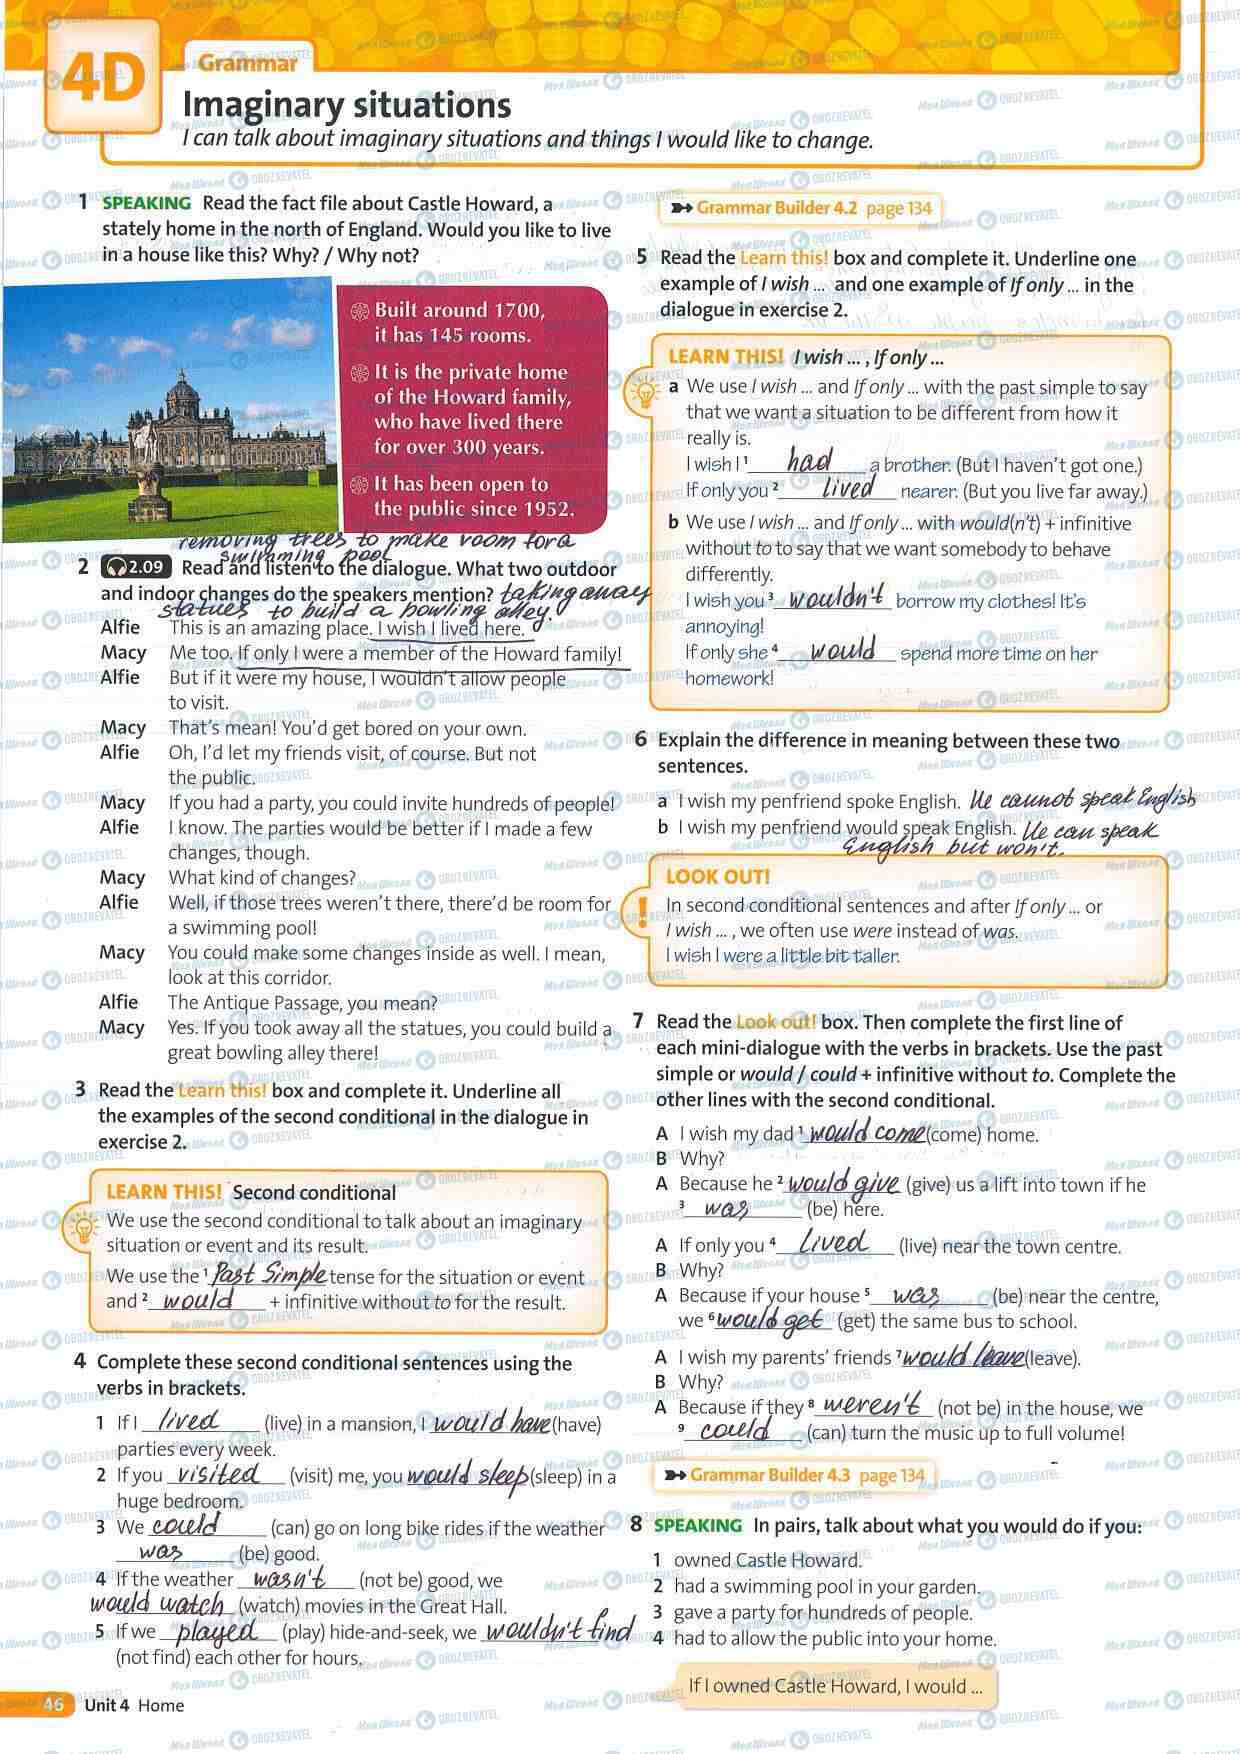 4D
Grammar
Imaginary situations
I can talk about imaginary situations and things I would like to change.
1 SPEAKING Read the fact file about Castle Howard, a
stately home in the north of England. Would you like to live
in a house like this? Why? / Why not?
Built around 1700,
it has 145 rooms.
It is the private home
of the Howard family,
who have lived there
for over 300 years.
It has been open to
the public since 1952.
removing trees to make room for a
swimming pool
2 2.09 Read and listen to the dialogue. What two outdoor
and indoor changes do the speakers mention? taking away
statues to build a bowling alley.
Alfie This is an amazing place. I wish I lived here.
Macy Me too. If only I were a member of the Howard family!
Alfie But if it were my house, I wouldn't allow people
to visit.
Macy That's mean! You'd get bored on your own.
Alfie Oh, I'd let my friends visit, of course. But not
the public.
Macy If you had a party, you could invite hundreds of people!
Alfie I know. The parties would be better if I made a few
changes, though.
Macy What kind of changes?
Alfie Well, if those trees weren't there, there'd be room for
a swimming pool!
Macy You could make some changes inside as well. I mean,
look at this corridor.
Alfie The Antique Passage, you mean?
Macy Yes. If you took away all the statues, you could build a
great bowling alley there!
3 Read the Learn this! box and complete it. Underline all
the examples of the second conditional in the dialogue in
exercise 2.
LEARN THIS! Second conditional
We use the second conditional to talk about an imaginary
situation or event and its result.
We use the 1 Past Simple tense for the situation or event
and 2 would + infinitive without to for the result.
4 Complete these second conditional sentences using the
verbs in brackets.
1 If I lived (live) in a mansion, I would have (have)
parties every week.
2 If you visited (visit) me, you would sleep (sleep) in a
huge bedroom.
3 We could (can) go on long bike rides if the weather
was (be) good.
4 If the weather wasn't (not be) good, we
would watch (watch) movies in the Great Hall.
5 If we played (play) hide-and-seek, we wouldn't find
(not find) each other for hours.
46 Unit 4 Home
Grammar Builder 4.2 page 134
5 Read the Learn this! box and complete it. Underline one
example of I wish ... and one example of If only ... in the
dialogue in exercise 2.
LEARN THIS! I wish ... , If only ...
a We use I wish ... and If only ... with the past simple to say
that we want a situation to be different from how it
really is.
I wish I 1 had a brother. (But I haven't got one.)
If only you 2 lived nearer. (But you live far away.)
b We use I wish ... and If only ... with would(n't) + infinitive
without to to say that we want somebody to behave
differently.
I wish you 3 wouldn't borrow my clothes! It's
annoying!
If only she 4 would spend more time on her
homework!
6 Explain the difference in meaning between these two
sentences.
a I wish my penfriend spoke English. He cannot speak English
b I wish my penfriend would speak English. He can speak
English but won't.
LOOK OUT!
In second conditional sentences and after If only ... or
I wish ... , we often use were instead of was.
I wish I were a little bit taller.
7 Read the Look out! box. Then complete the first line of
each mini-dialogue with the verbs in brackets. Use the past
simple or would / could + infinitive without to. Complete the
other lines with the second conditional.
A I wish my dad 1 would come (come) home.
B Why?
A Because he 2 would give (give) us a lift into town if he
3 was (be) here.
A If only you 4 lived (live) near the town centre.
B Why?
A Because if your house 5 was (be) near the centre,
we 6 would get (get) the same bus to school.
A I wish my parents' friends 7 would leave (leave).
B Why?
A Because if they 8 weren't (not be) in the house, we
9 could (can) turn the music up to full volume!
Grammar Builder 4.3 page 134
8 SPEAKING In pairs, talk about what you would do if you:
1 owned Castle Howard.
2 had a swimming pool in your garden.
3 gave a party for hundreds of people.
4 had to allow the public into your home.
If I owned Castle Howard, I would ...